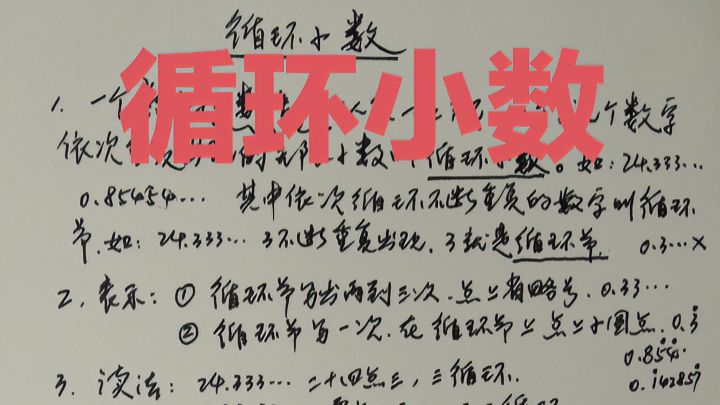 循环小数
循环小数
1. 一个数字
依次 的 小数 循环小数。如：24.333…
0.85454… 其中依次循环不断重复的数字叫循环
节，如：24.333… 3不断重复出现，3就是循环节。 0.3…×
2. 表示：① 循环节写出两到三次，点上省略号。0.33…
② 循环节写一次，在循环节上点上小圆点。0.3̇
0.85̇4̇
0.1̇42857̇
3. 读法：24.333… 二十四点三，三循环。